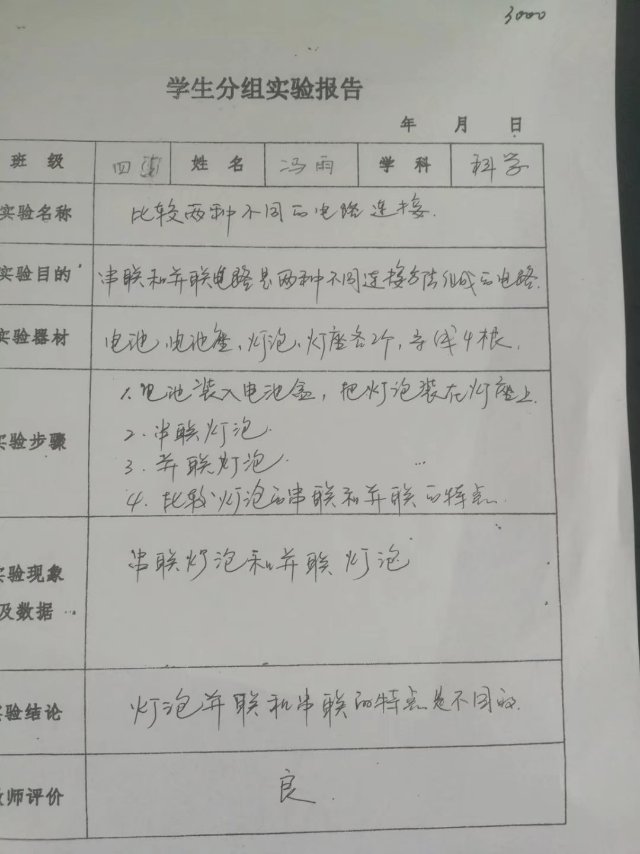 3000
学生分组实验报告
年 月 日
班 级 四 姓 名 冯雨 学 科 科学
实验名称 比较两种不同的电路连接.
实验目的 串联和并联电路是两种不同连接方法组成的电路.
实验器材 电池、电池座、灯泡、灯座各2个，导线4根.
1.电池装入电池盒，把灯泡装在灯座上.
实验步骤 2.串联灯泡.
3.并联灯泡.
4.比较灯泡的串联和并联的特点.
实验现象 串联灯泡和并联灯泡
及数据
实验结论 灯泡并联和串联的特点是不同的.
教师评价 良.